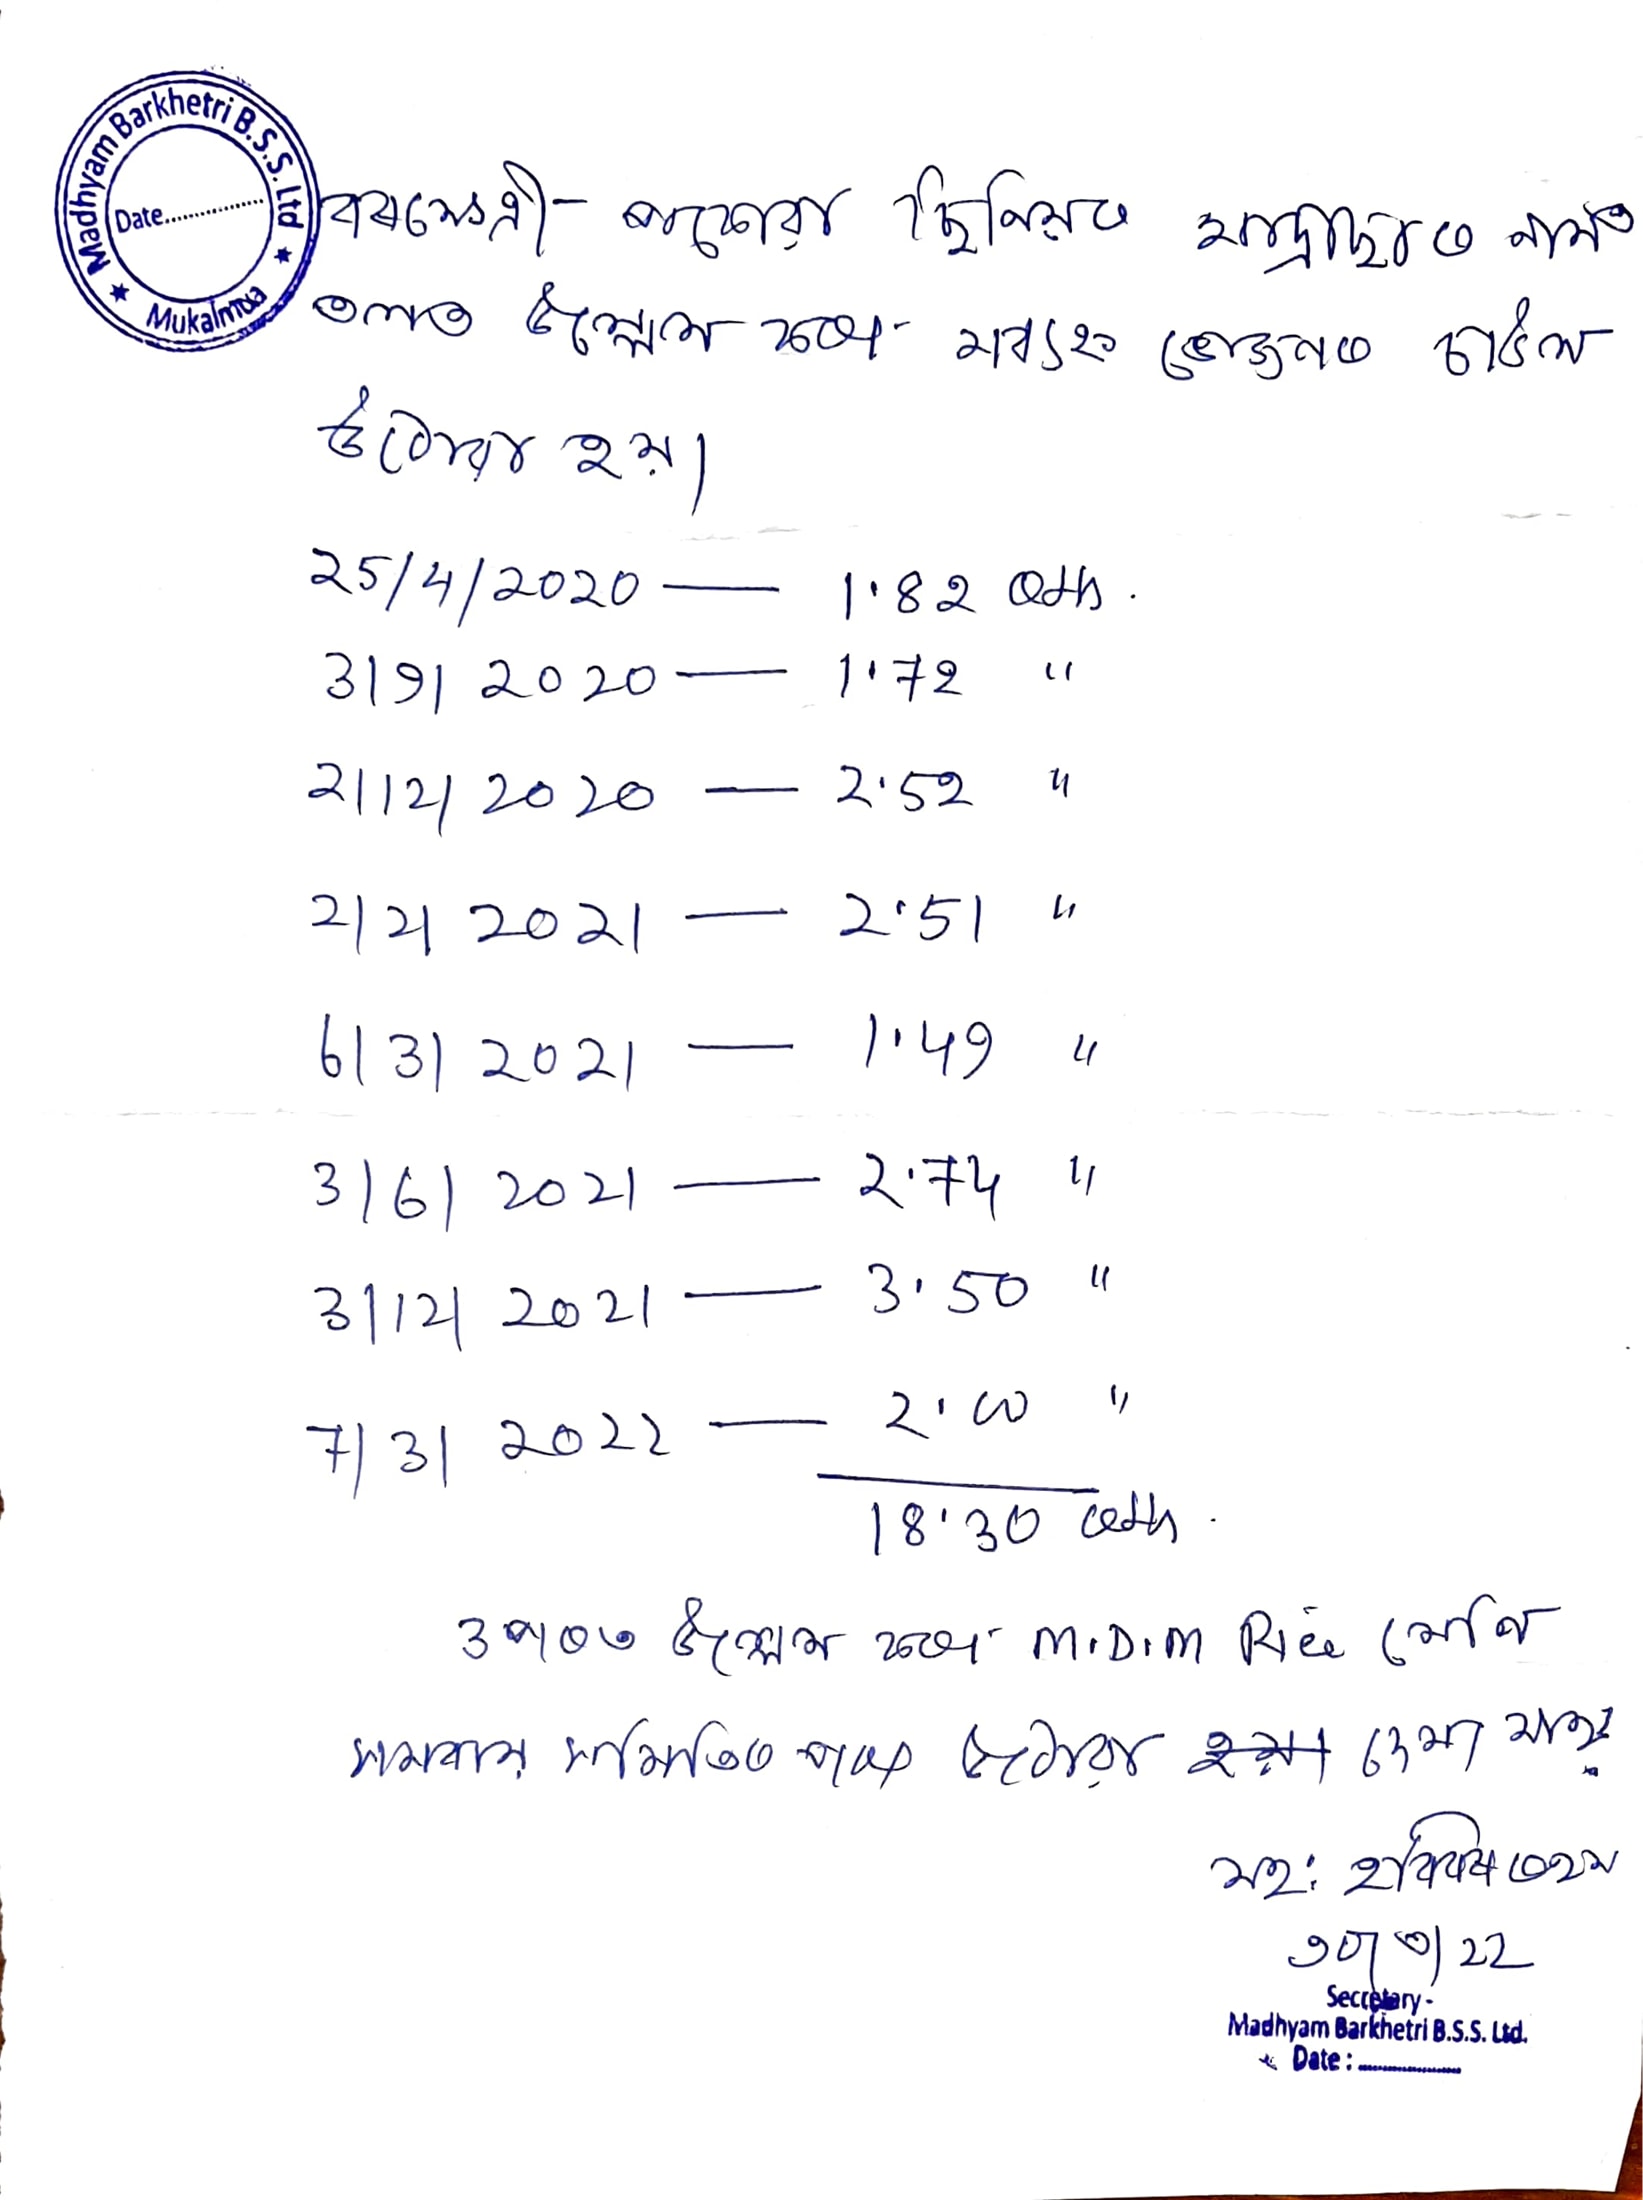 Madhyam Barkhetri B.S.S. Ltd
Date..............
★ Mukalmua ★
বৰক্ষেত্ৰী - ছিনিয়ৰ নামত
তলত উল্লেখ কৰা চাউল
উঠোৱা হয়।
25/4/2020 — 1.82 Qtls.
3/9/2020 — 1.72 "
2/12/2020 — 2.52 "
2/2/2021 — 2.51 "
6/3/2021 — 1.49 "
3/6/2021 — 2.74 "
3/12/2021 — 3.50 "
7/3/2022 — 2.00 "
18.30 Qtls.
ওপৰত উল্লেখ কৰা M.D.M Rice খোৱা
সমবায় সমিতিৰ পৰা উঠোৱা হয়।
মহঃ
Secretary -
Madhyam Barkhetri B.S.S. Ltd.
Date : ....................